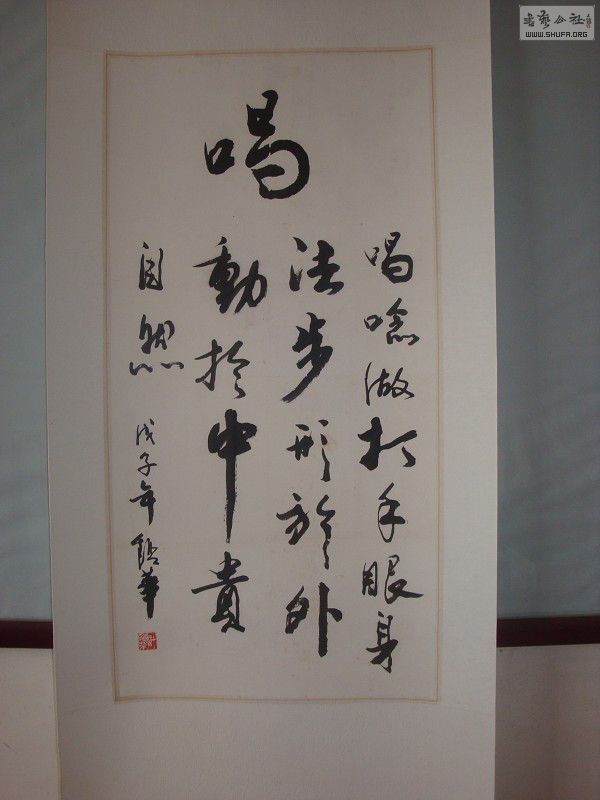 書藝公社
WWW.SHUFA.ORG
喝
唱唸做打手眼身
法步形於外
動於中貴
自然
戊子年 華